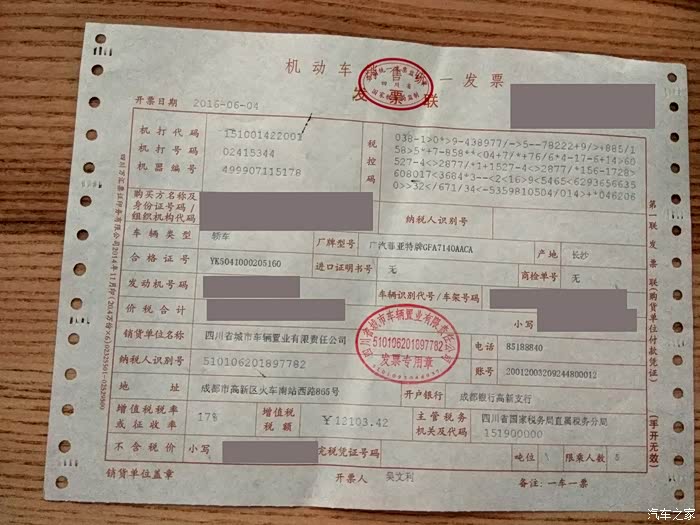 机动车销售统一发票
发票联
开票日期 2016-06-04
机打代码 151001422001
机打号码 02415344
机器编号 499907115178
税控码
038-1>0*>9-438977/->5--78222+9/>+885/1
58>5*+7-858*+<04+7/*+76/6*4-17-6+14>60
527-4<>2877/*1+1527-4<>2877/*156-1728>
608017<3684*3--<2<16>9<5465<6293656630
0>>32</671/34<-5359810504/014>+*046206
购买方名称及身份证号码/组织机构代码
纳税人识别号
车辆类型 轿车 厂牌型号 广汽菲亚特牌GFA7140AACA 产地 长沙
合格证号 YK5041000205160 进口证明书号 无 商检单号 无
发动机号码 车辆识别代号/车架号码
价税合计 小写
销货单位名称 四川省城市车辆置业有限责任公司 电话 85188840
纳税人识别号 510106201897782 账号 20012003209244800012
地址 成都市高新区火车南站西路865号 开户银行 成都银行高新支行
增值税税率或征收率 17% 增值税税额 ¥12103.42 主管税务机关及代码 四川省国家税务局直属税务分局 151900000
不含税价 小写 完税凭证号码 吨位 限乘人数 5
销货单位盖章 开票人 吴文利 备注:一车一票
四川省城市车辆置业有限责任公司
510106201897782
发票专用章
第一联 发票联(购货单位付款凭证)
(手开无效)
汽车之家